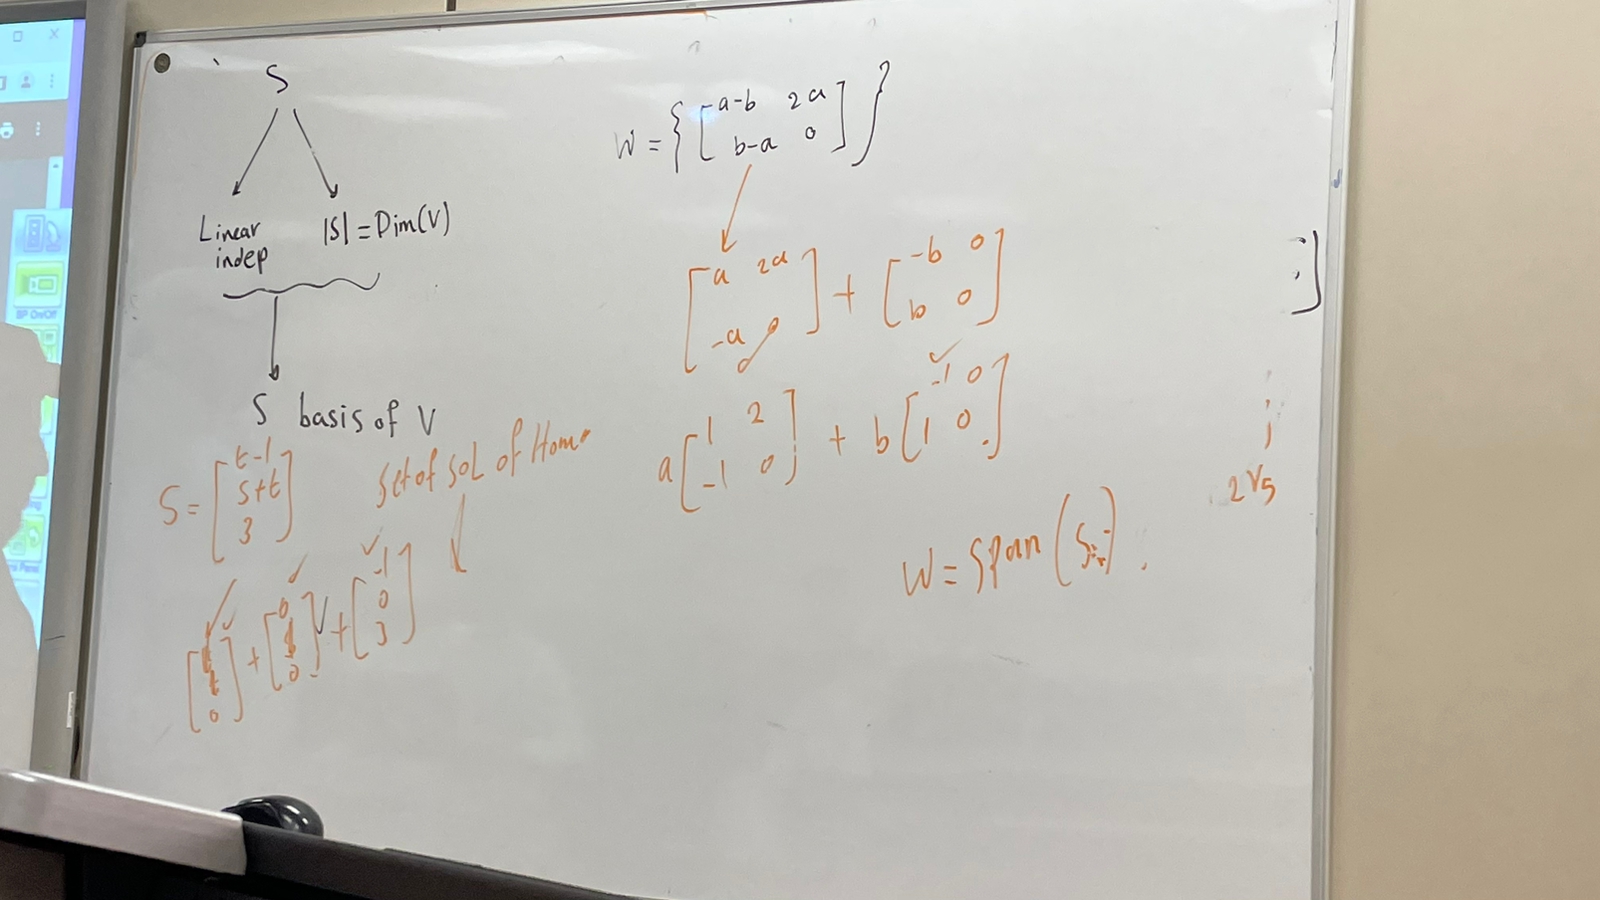 S
Linear
indep
|S| = Dim(V)
S basis of V
S = [ t-1
s+t
3 ]
set of sol of Home
[ t
t
0 ] + [ 0
0 ] + [ -1
0
3 ]
W = { [ a-b 2a
b-a 0 ] }
[ a 2a
-a 0 ] + [ -b 0
b 0 ]
a [ 1 2
-1 0 ] + b [ -1 0
1 0 ]
W = Span (S
]
2
BP On/Off